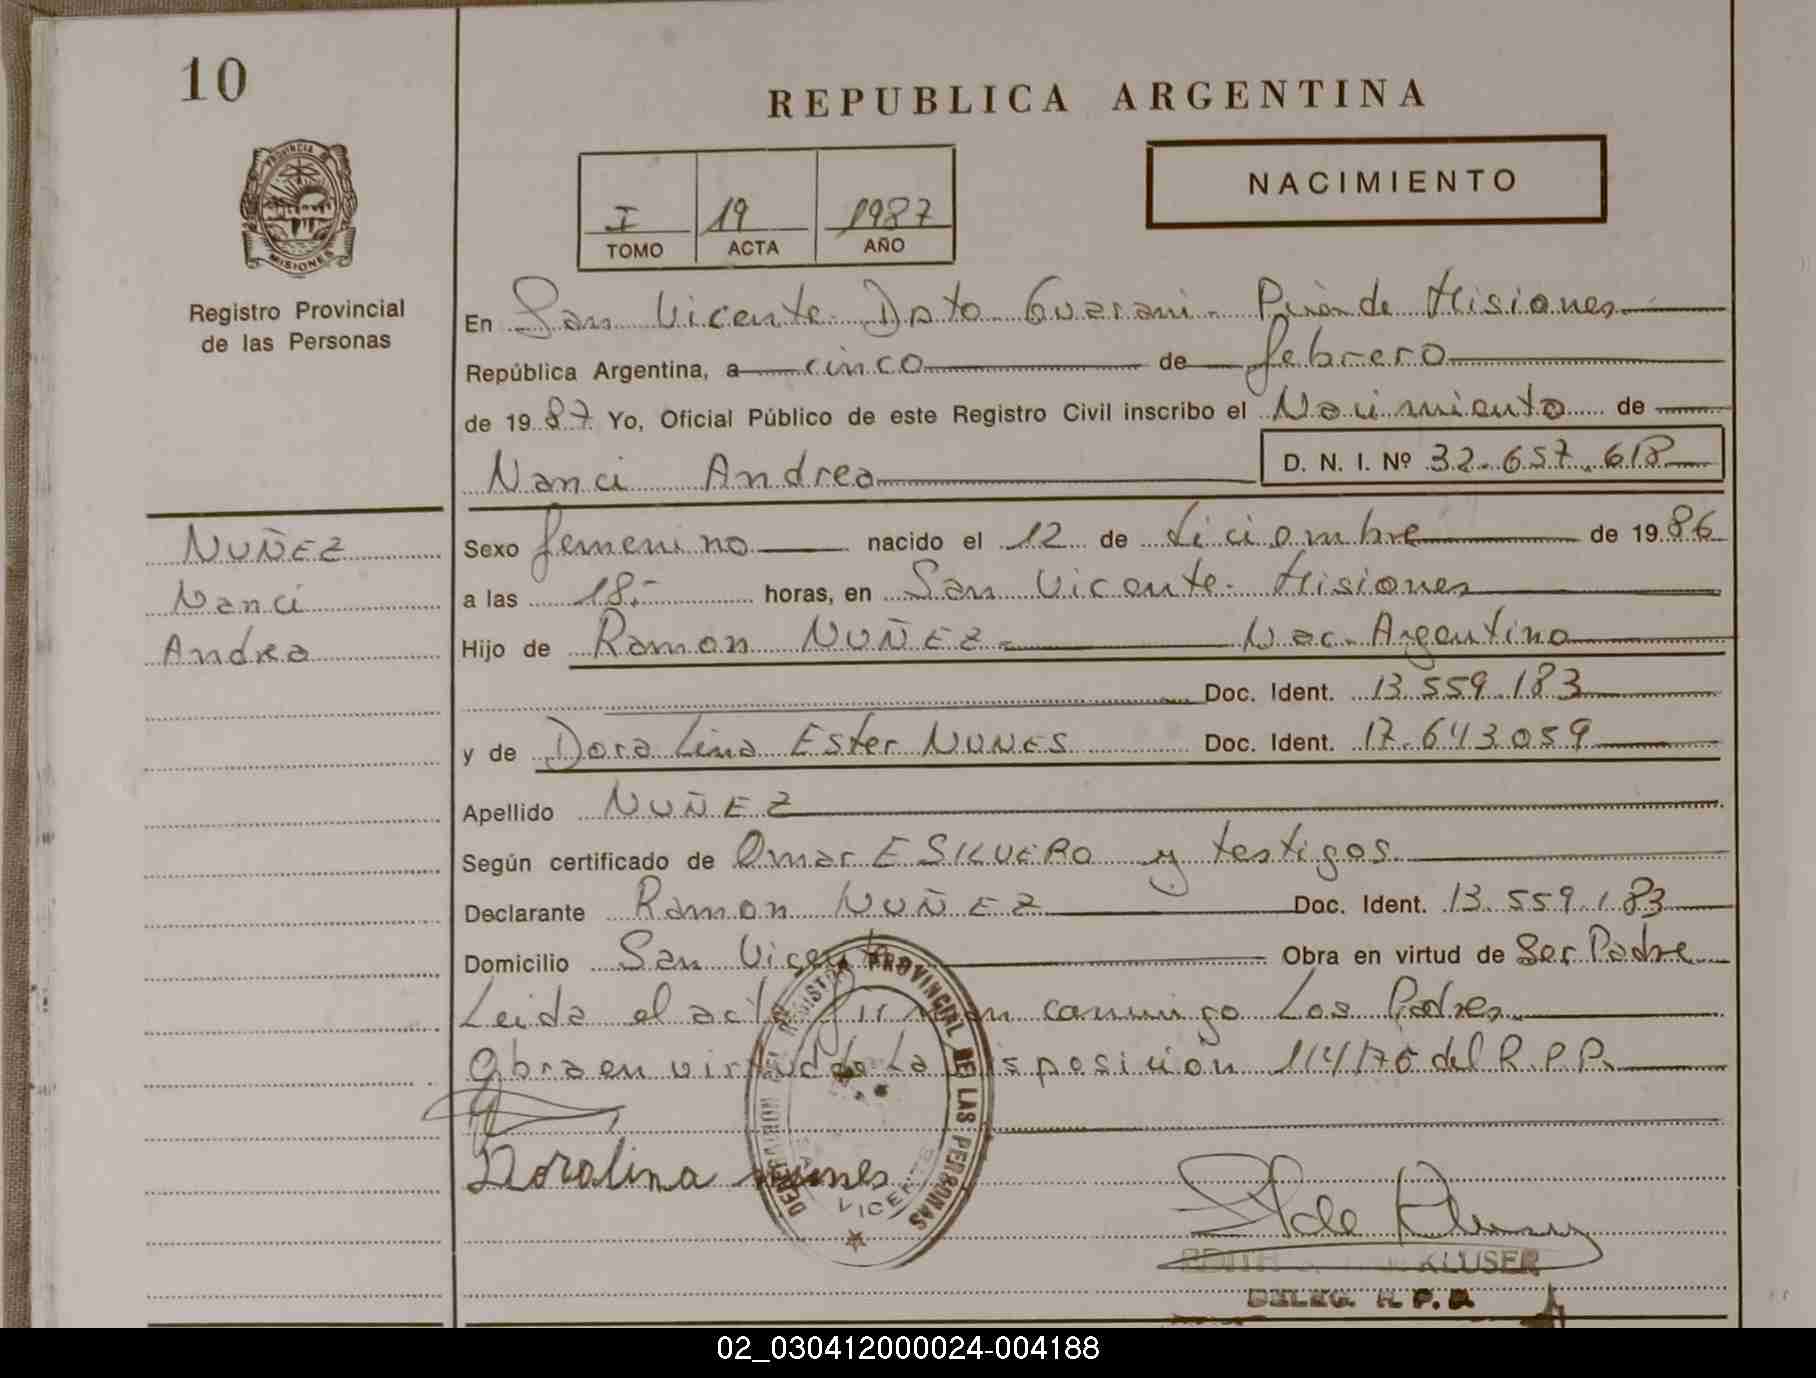 10
REPUBLICA ARGENTINA
PROVINCIA DE
MISIONES
NACIMIENTO
I 19 1987
TOMO ACTA AÑO
Registro Provincial
de las Personas
En San Vicente Dpto Guarani - Pcia de Misiones
República Argentina, a cinco de febrero
de 1987 Yo, Oficial Público de este Registro Civil inscribo el Nacimiento de
Nanci Andrea D. N. I. Nº 32.657.618
NUÑEZ
Nanci
Andrea
Sexo femenino nacido el 12 de diciembre de 1986
a las 18.- horas, en San Vicente - Misiones
Hijo de Ramon NUÑEZ - Nac. Argentino
Doc. Ident. 13.559.183
y de Dora Lina Ester NUNES Doc. Ident. 17.643.059
Apellido NUÑEZ
Según certificado de Omar ESILVERO y testigos
Declarante Ramon NUÑEZ Doc. Ident. 13.559.183
Domicilio San Vicente Obra en virtud de Ser Padre
Leida el acta firman conmigo Los Padres
Obra en virtud de La Disposición 114/76 del R.P.P.
Doralina nunes
DELEGACION DEL REGISTRO PROVINCIAL DE LAS PERSONAS
VICENTE
EDITH KLUSER
DELEG. R. P. P.
02_030412000024-004188